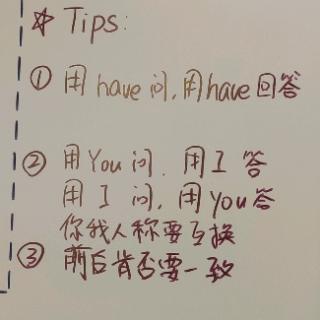 ☆ Tips:
① 用 have 问, 用have 回答
② 用You 问. 用I 答
用 I 问, 用 you答
你我人称要互换
③ 前后肯否要一致